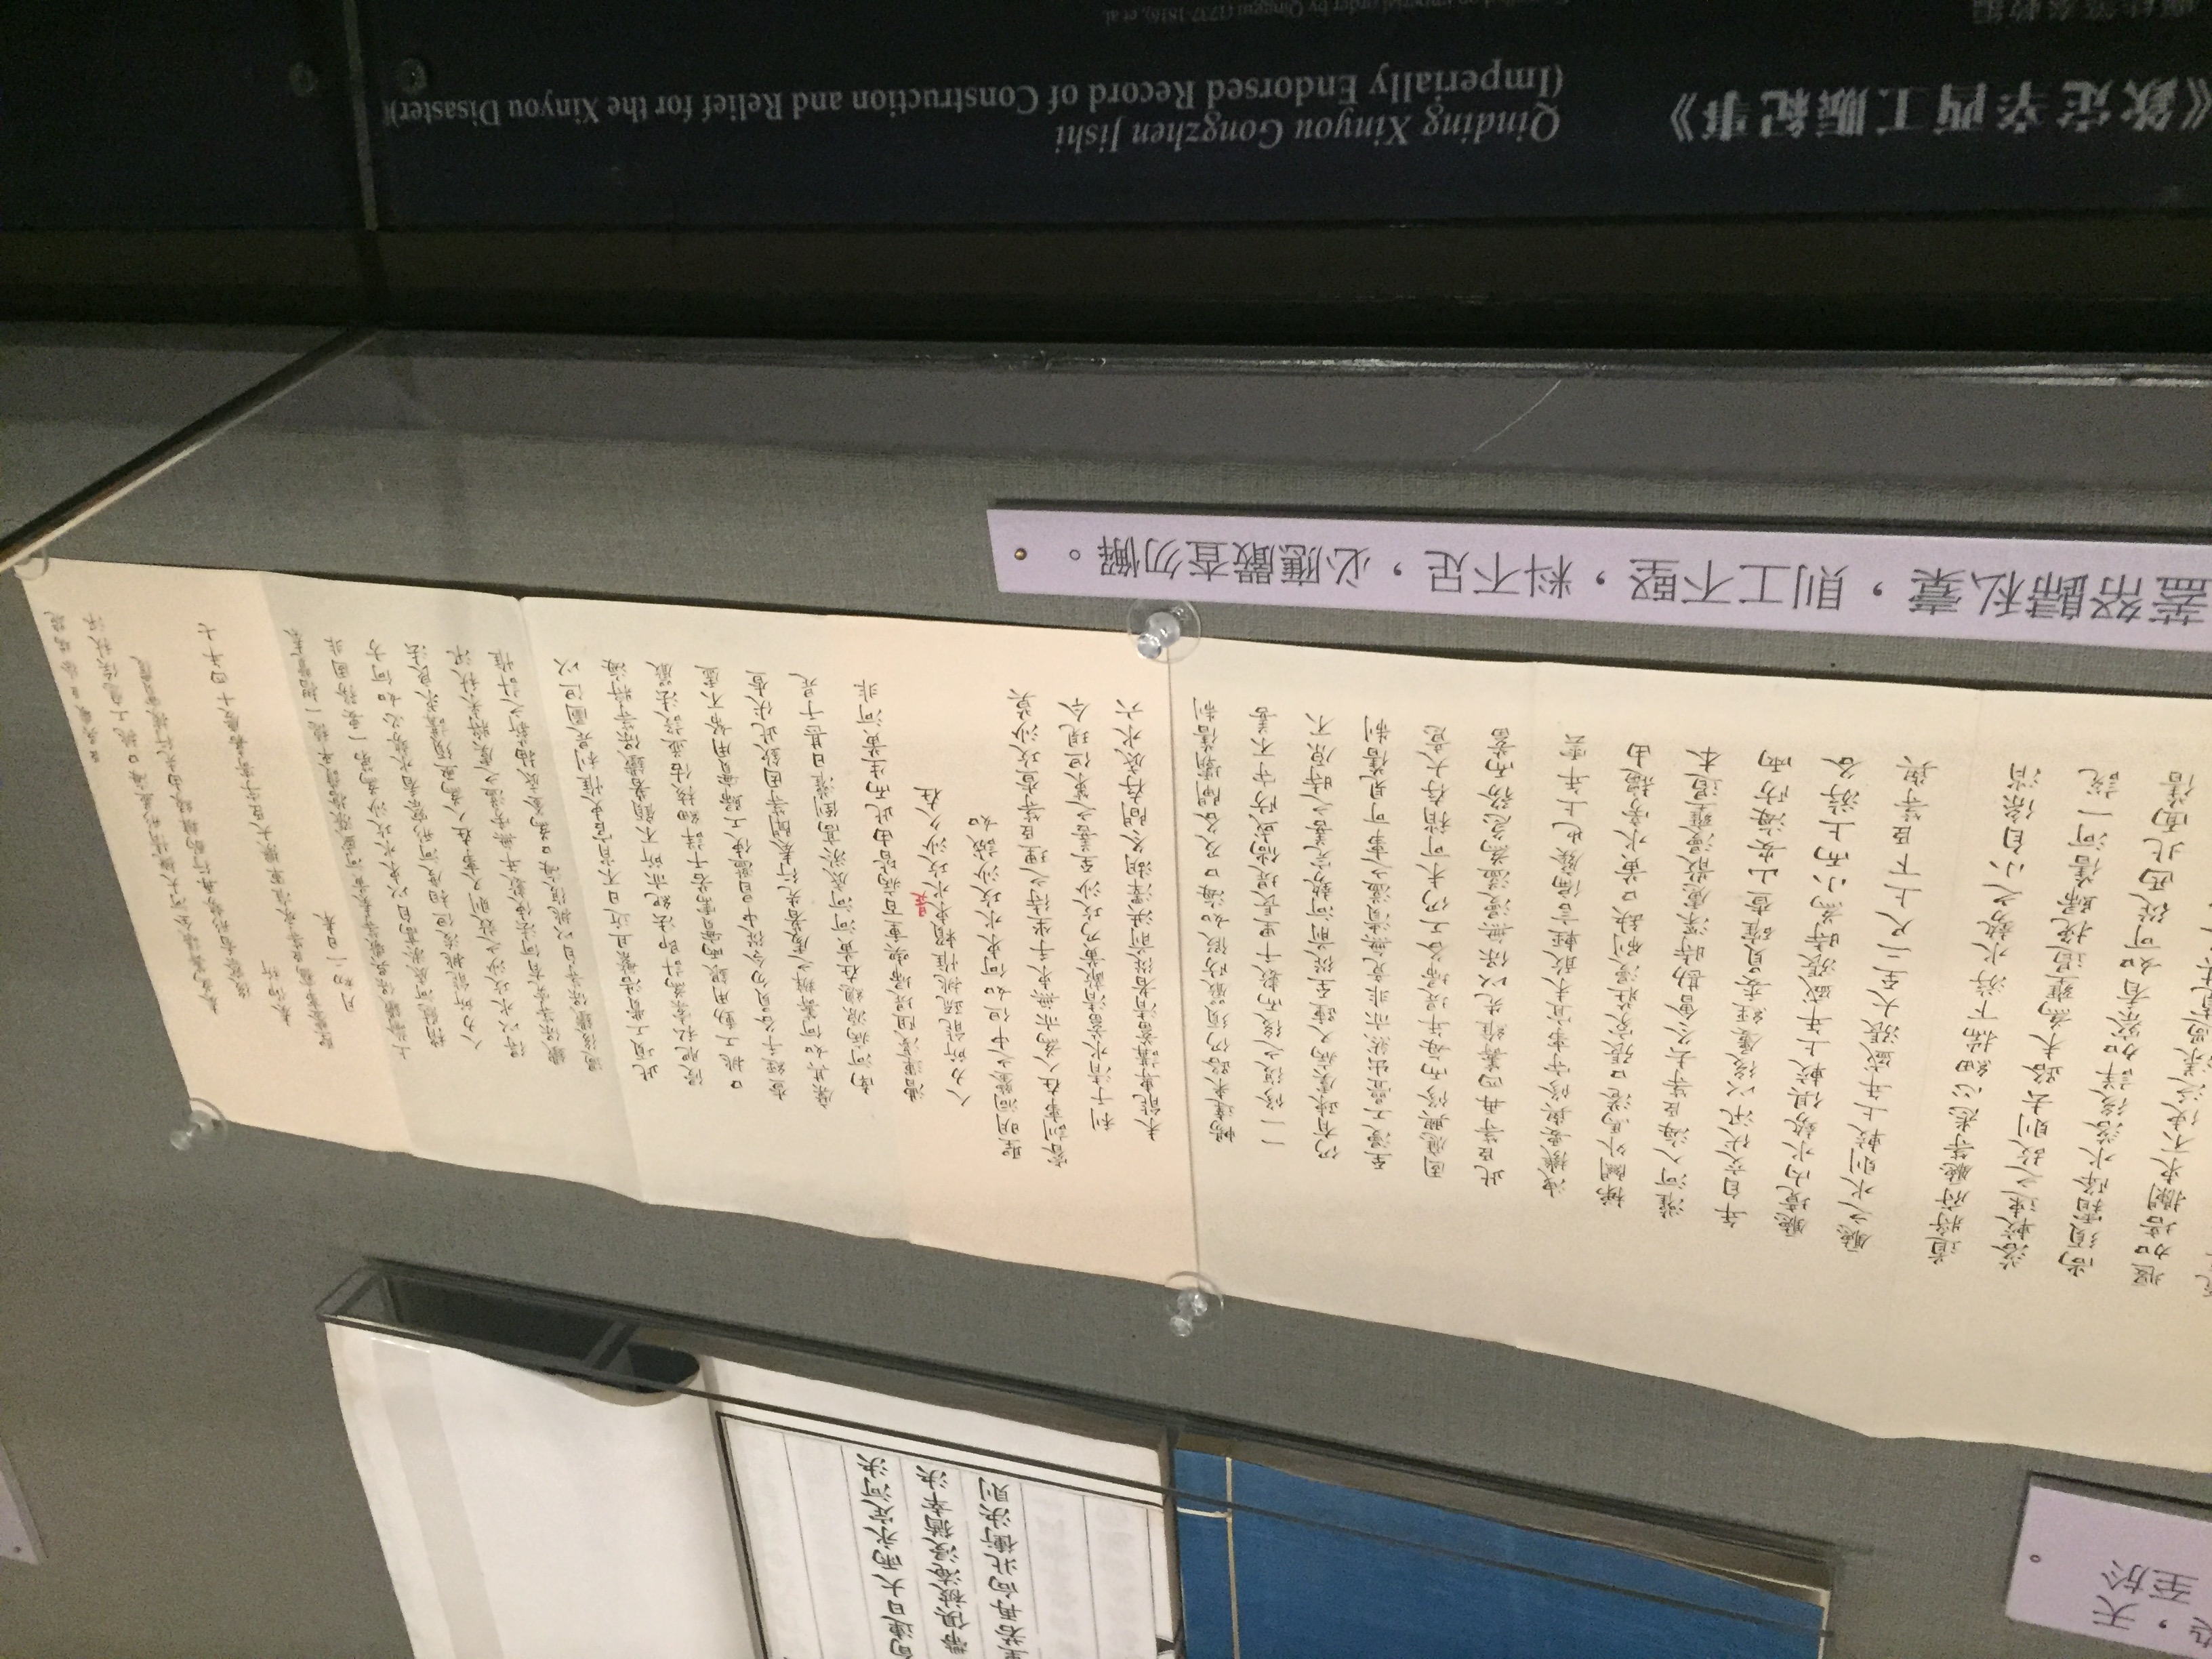 染，天
至於
旬連日大雨永定河決
帶俱被淹浸猶幸決
里若再向北衝決則
奏為籌議全河大概情形並海口挑工應俟秋汛
後察看形勢再行酌辦緣由先行據實覆
奏仰祈
聖鑒事竊臣等承准軍機大臣字寄嘉慶十四年七
月初二日奉
上諭鐵保吳璥等奏黃河盛漲搶護平穩一摺覽奏
稍慰河底淤高自以束水攻沙為第一要務固非
人力所能挑浚但相度河形察看水勢必如何方
得以水攻沙之效則又事在人為亟須講求良法
鐵保等究有何法使數年無旁溢之虞將來秋汛
過後鐵保等自以挑復海口為釜底抽薪之計惟
此項工費浩繁且近日不肖官吏惟利是圖但以
侵肥私橐為計即法紀亦所不顧著鐵保等將海
口挑工動用銀兩實需若干詳細核估並設法嚴
查經手各員勿令從中冒濫使工歸實用帑不虛
糜其如何籌辦之處著先行奏聞等因欽此伏查
南河病源總在黃河河底淤高倒灌日甚于是
漕運淺阻堤埽喫重百病皆由此而生黃河非
人力所能疏挑惟賴束水攻沙久在
是
聖明洞鑒之中但如何束水攻沙誠如
睿訓事在人為亦無束手坐待之理臣等查攻沙莫
利于清水蓄清敵黃乃攻沙至善之策但現今
未能專講蓄清者從前洪澤湖冬間存底水六
暢達來路仍須嚴防假如海口及各閘壩舊制
一一修復之後而數千里長堤倘或防守不善
仍有疎虞病又踵至從前河勢完善之時原不
至漫工疊出然亦非竟無潰溢之事可見舊制
固應興修而每年堤埽各工仍未可稍存大意
此臣等再四籌維先以保無漫溢為急務而蓄
洩機要與修守事宜未敢輕言偏廢也上年雲
梯關外馬港口張家莊漫刷缺口黃水旁趨由
灌河入海臣等去冬會勘時深慮散漫壅遏本
年自交伏汛以後屢經委員確查山安海防兩
廳境內水勢俱較上年盛漲時為小而上游各
廳之水則較上年盛漲大至二尺上下臣等與
道將府廳等悉心細揣下游水勢之小自係消
落較速之故則去路未為壅遏挽歸舊河一說
尚須霜降水落後詳加察看如可從西北面舊
堰加培攔束不使泛漾
蓋帑歸私橐，則工不堅，料不足，必應嚴查勿懈。
《欽定辛酉工賑紀事》
Qinding Xinyou Gongzhen Jishi
(Imperially Endorsed Record of Construction and Relief for the Xinyou Disaster)
慶桂等奉敕編
Compiled on imperial order by Qinggui (1737-1816), et al.